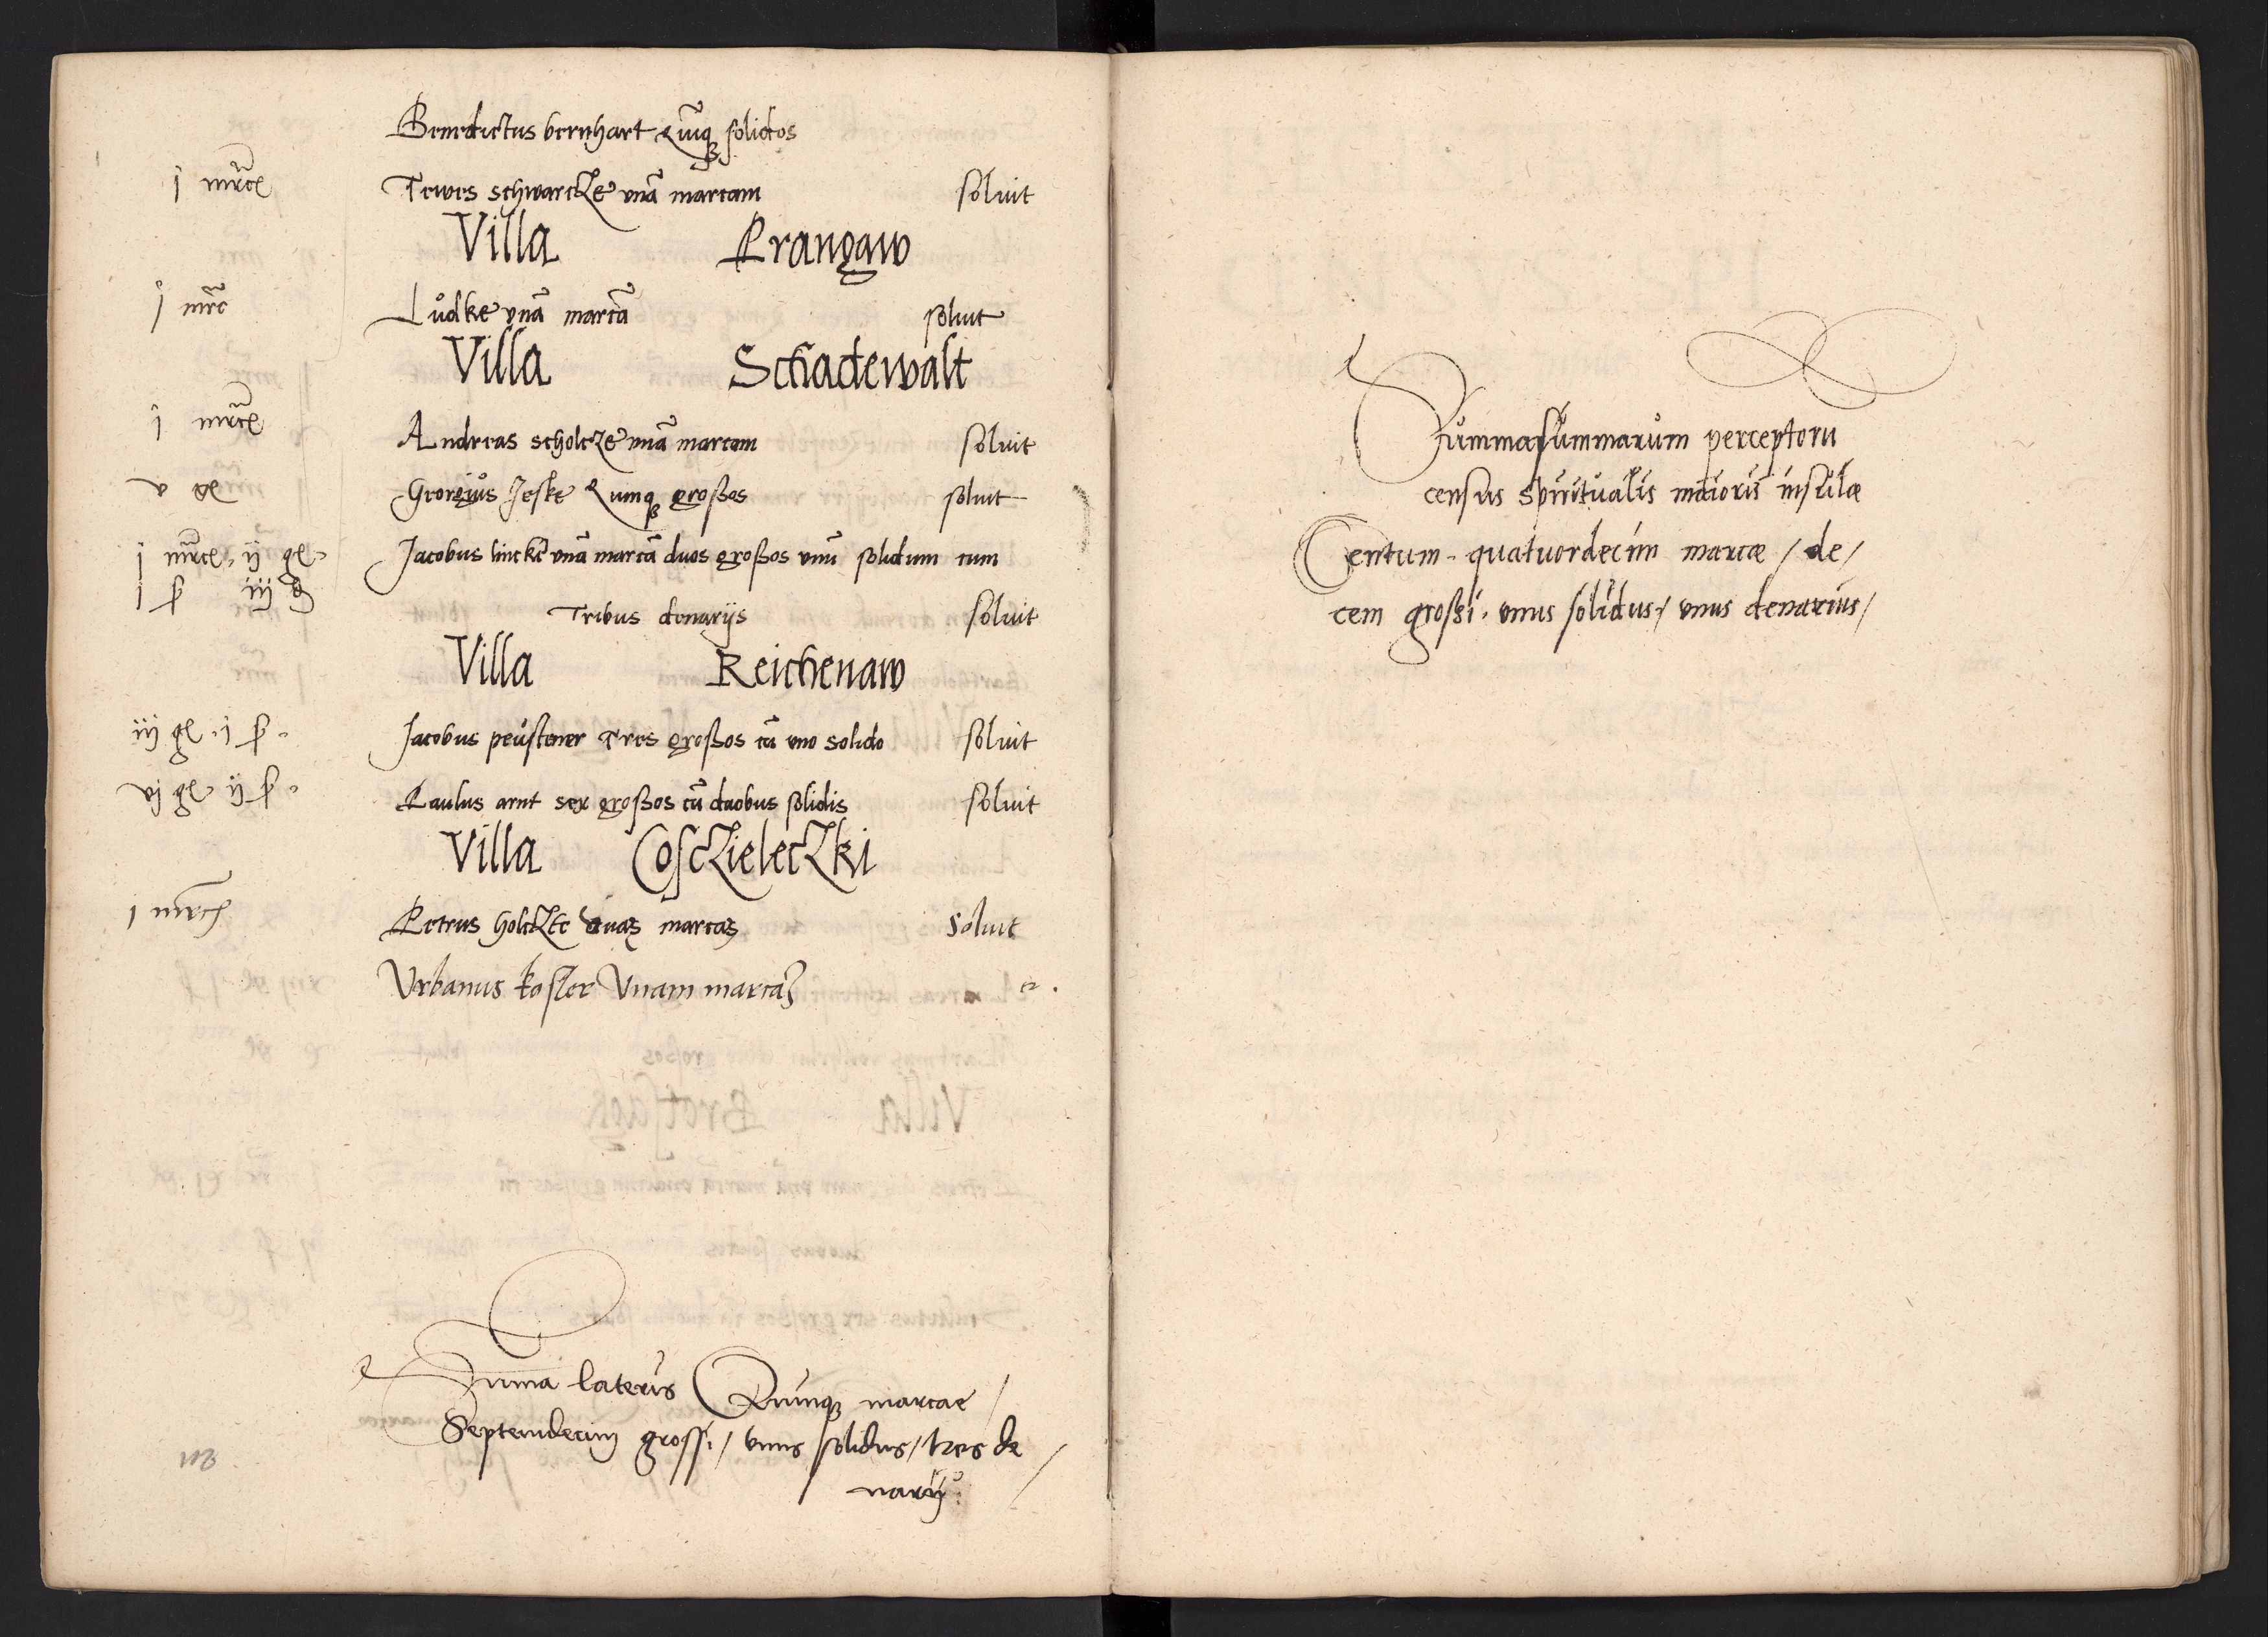 Benedictus bernhart Quinq solidos
j mrce Tewes schwartze unã marcam soluit
Villa Prangaw
j mrc Lůdke unã marcã soluit
Villa Schadewalt
j mrce Andreas scholcze unã marcam soluit
v ge Georgius Jeske Quinq großos soluit
j mrce ij ge Jacobus lincke unã marcã duos großos unũ solidum cum
j ß iij d Tribus denarijs soluit
Villa Reichenaw
iij ge j ß Jacobus peustener Tres großos cũ uno solido soluit
vj ge ij ß Paulus arnt sex großos cũ duobus solidis soluit
Villa Cosczieleczki
j mrc Petrus holczte duas marcas Soluit
Urbanus koster Unam marcã
Suma lateris Quinq marcae /
Septemdecim grossi / unus solidus / tres de /
narij
Summasummarum perceptoru
census spiritualis maioris insulæ
Centum quatuordecim marcæ / de /
cem großi unus solidus / unus denarius /